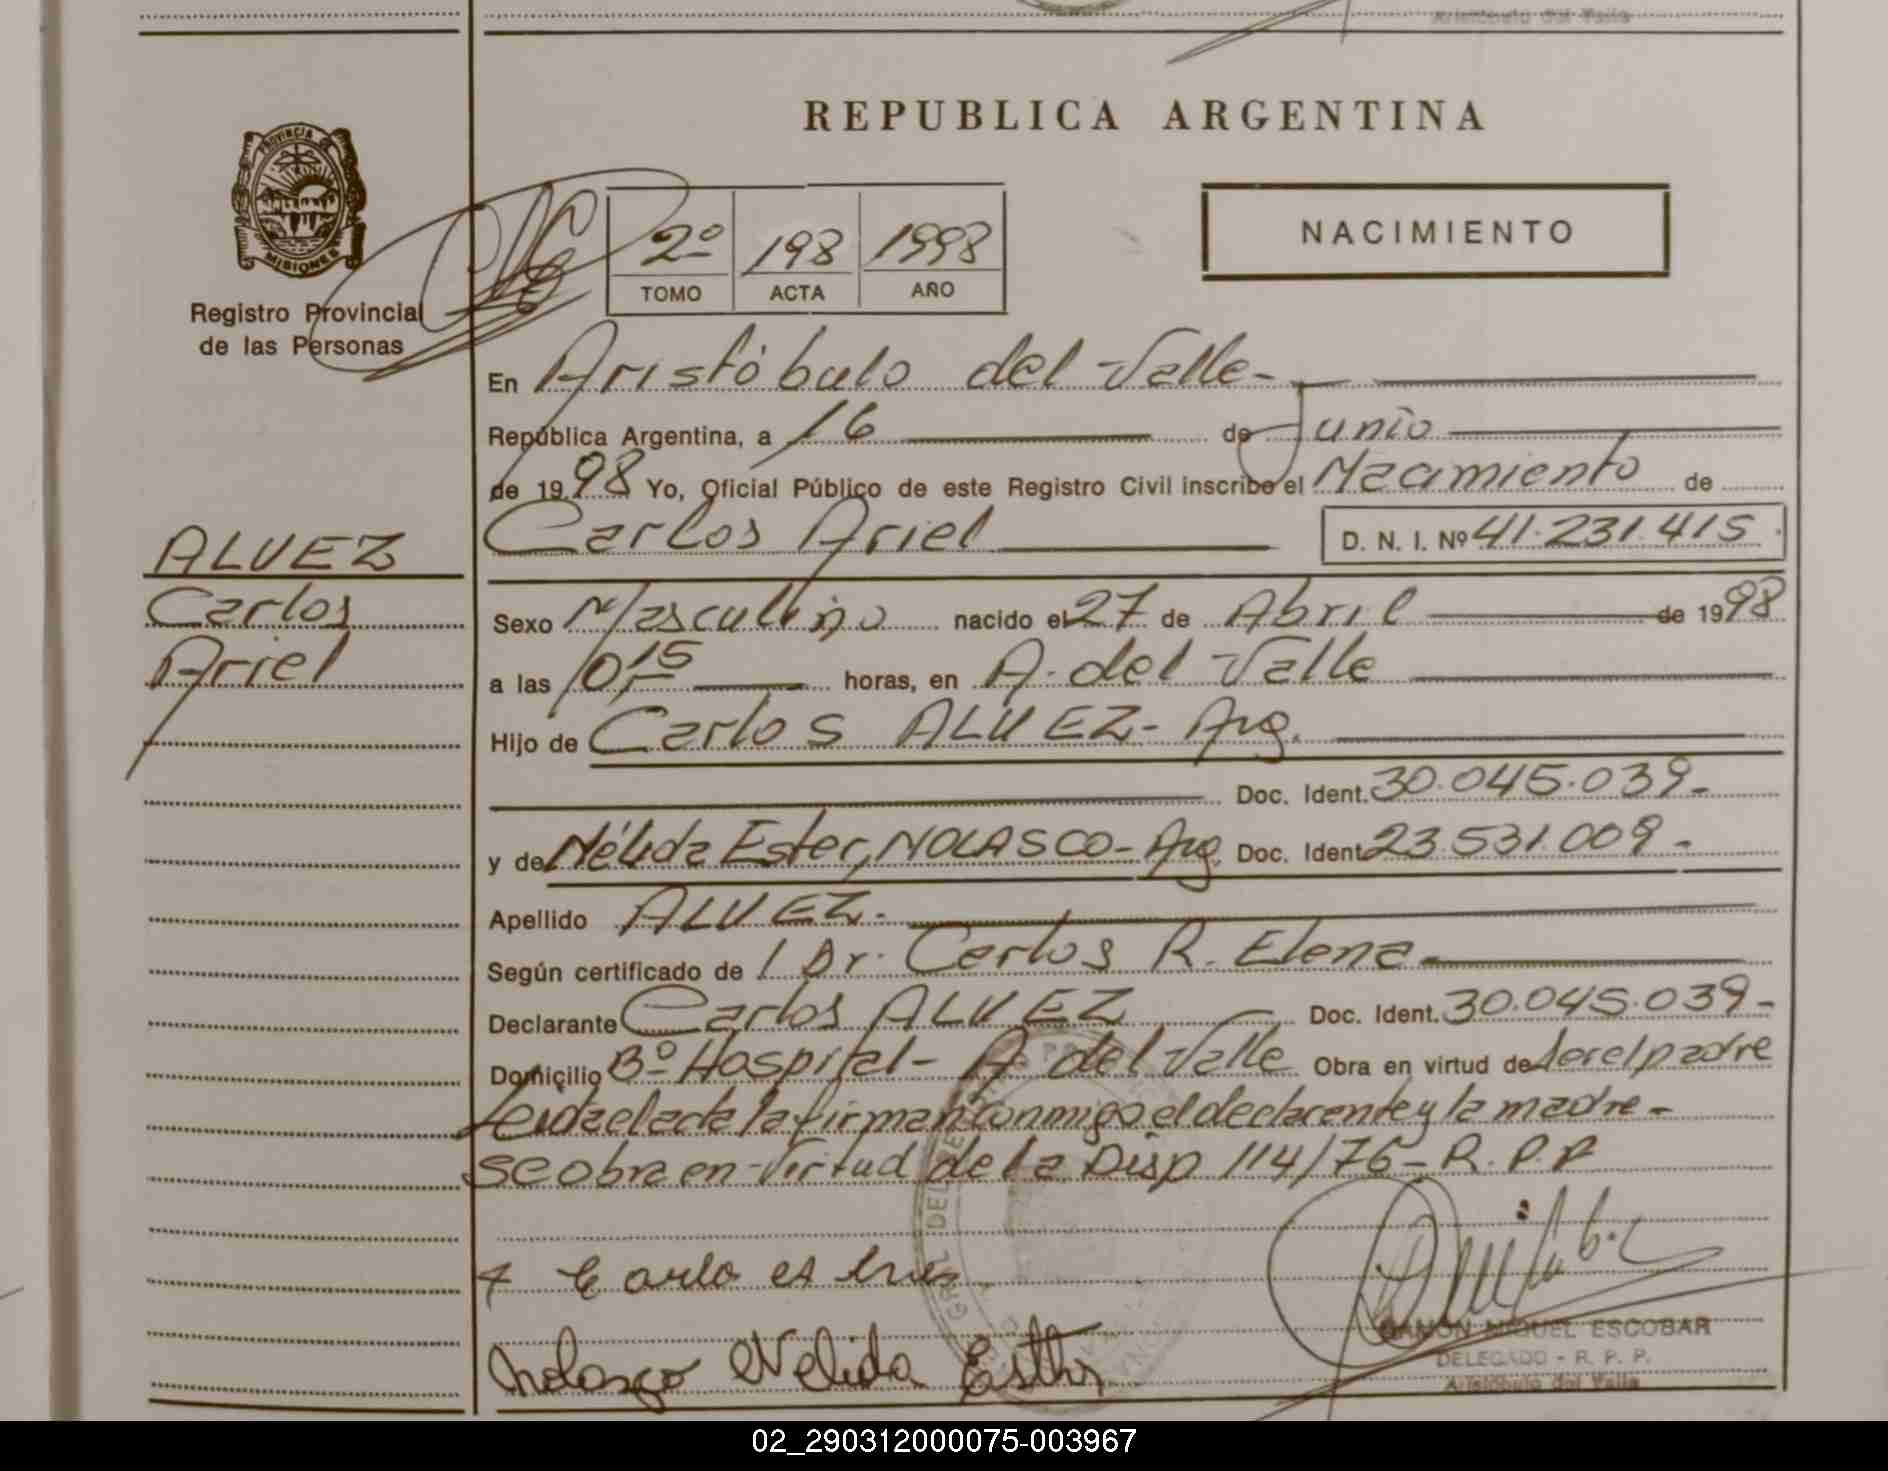 Aristóbulo del Valle
REPUBLICA ARGENTINA
PROVINCIA DE
MISIONES
Registro Provincial
de las Personas
2º 198 1998
TOMO ACTA AÑO
NACIMIENTO
En Aristóbulo del Valle-
República Argentina, a 16 de Junio
de 1998 Yo, Oficial Público de este Registro Civil inscribo el Nacimiento de
Carlos Ariel D. N. I. Nº 41.231.415
ALVEZ
Carlos
Ariel
Sexo Masculino nacido el 27 de Abril de 1998
a las 0,15 horas, en A. del Valle
Hijo de Carlos ALVEZ- Arg.
Doc. Ident. 30.045.039-
y de Nélida Ester, NOLASCO- Arg. Doc. Ident. 23.531.009-
Apellido ALVEZ.
Según certificado de Dr. Carlos R. Elena-
Declarante Carlos ALVEZ Doc. Ident. 30.045.039-
Domicilio Bº Hospital- A. del Valle Obra en virtud de ser el padre
Leida el acta la firman conmigo el declarante y la madre-
se obra en virtud de la Disp 114/76- R. P. P
Nolasco Nelida Esther
RAMON MIGUEL ESCOBAR
DELEGADO - R. P. P.
Aristóbulo del Valle
02_290312000075-003967